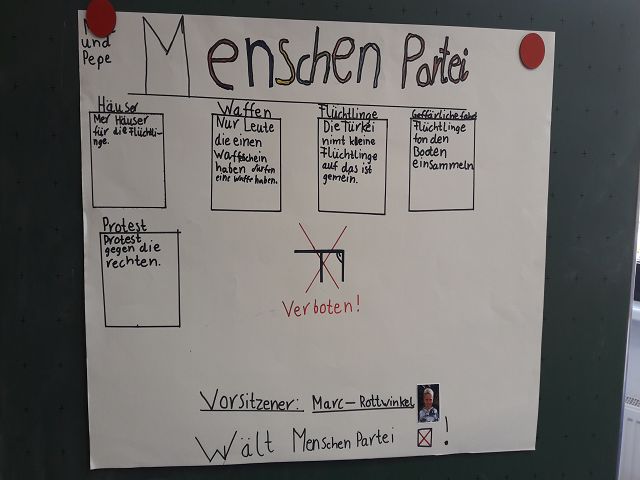 und
Pepe
Menschen Partei
Häuser
Mer Häuser
für die Flüchtli-
nge.
Waffen
Nur Leute
die einen
Waffschein
haben durfen
eine Waffe haben.
Flüchtlinge
Die Türkei
nimt kleine
Flüchtlinge
auf das ist
gemein.
Flüchtlinge
fon den
Booten
einsammeln
Protest
Protest
gegen die
rechten.
Verboten!
Vorsitzener: Marc-Rottwinkel
Wält Menschen Partei !